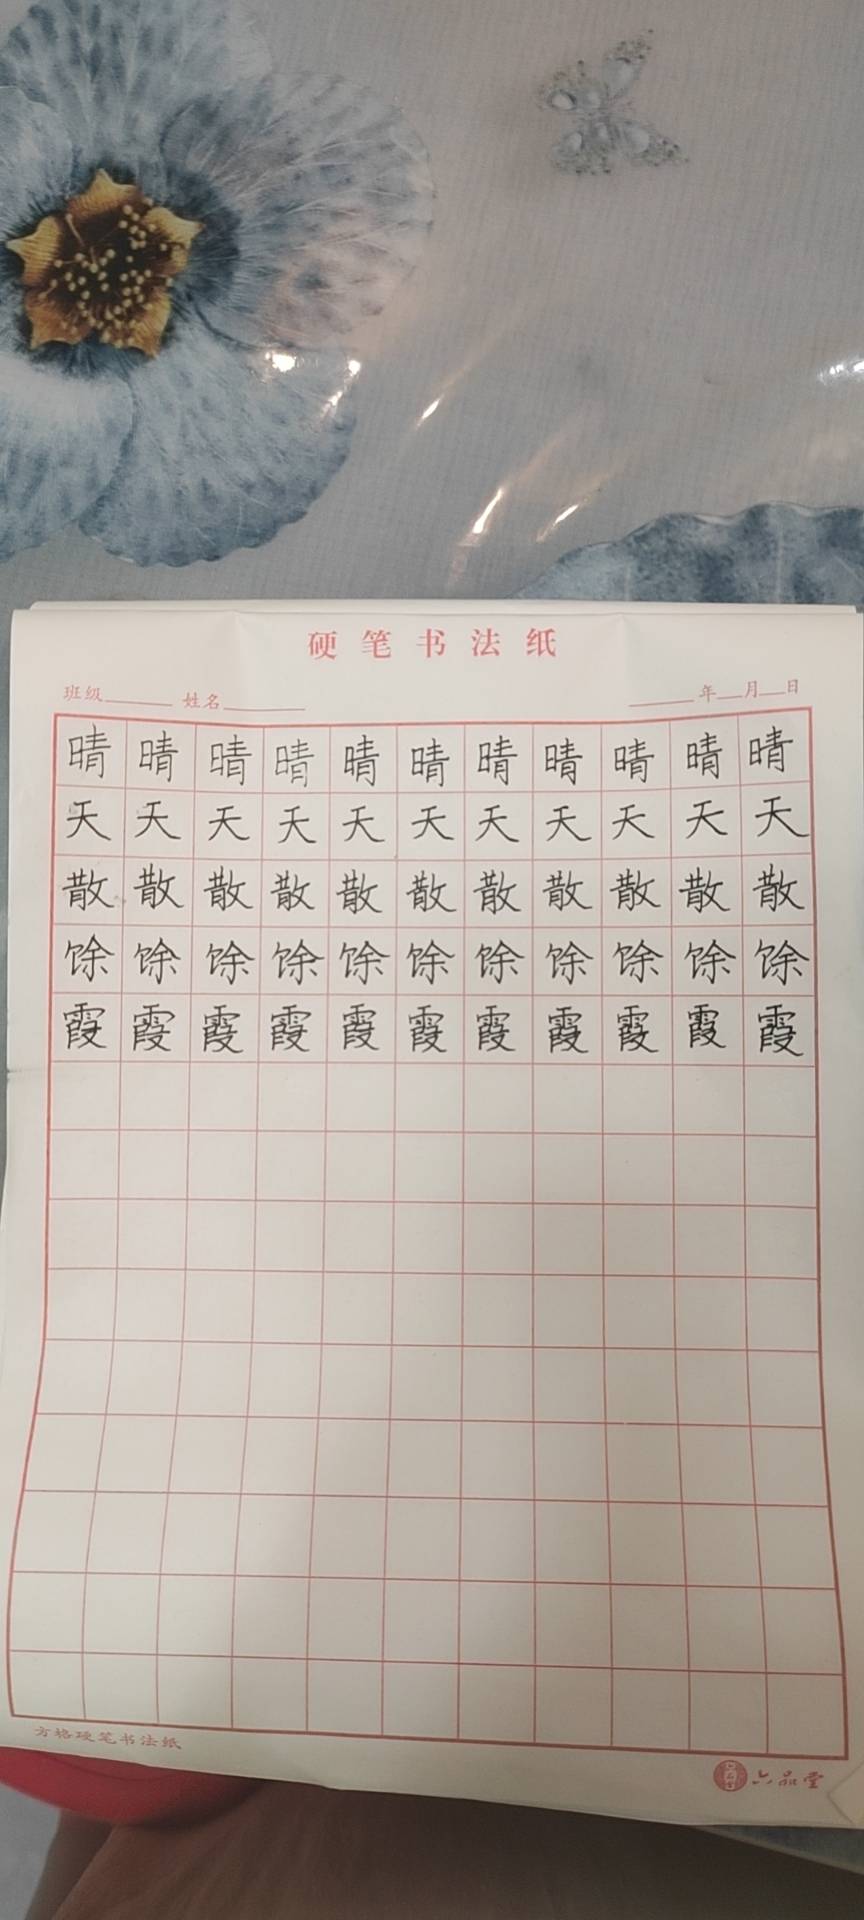 硬笔书法纸
班级 姓名 年 月 日
晴晴晴晴晴晴晴晴晴晴晴
天天天天天天天天天天天
散散散散散散散散散散散
馀馀馀馀馀馀馀馀馀馀馀
霞霞霞霞霞霞霞霞霞霞霞
方格硬笔书法纸
六品堂